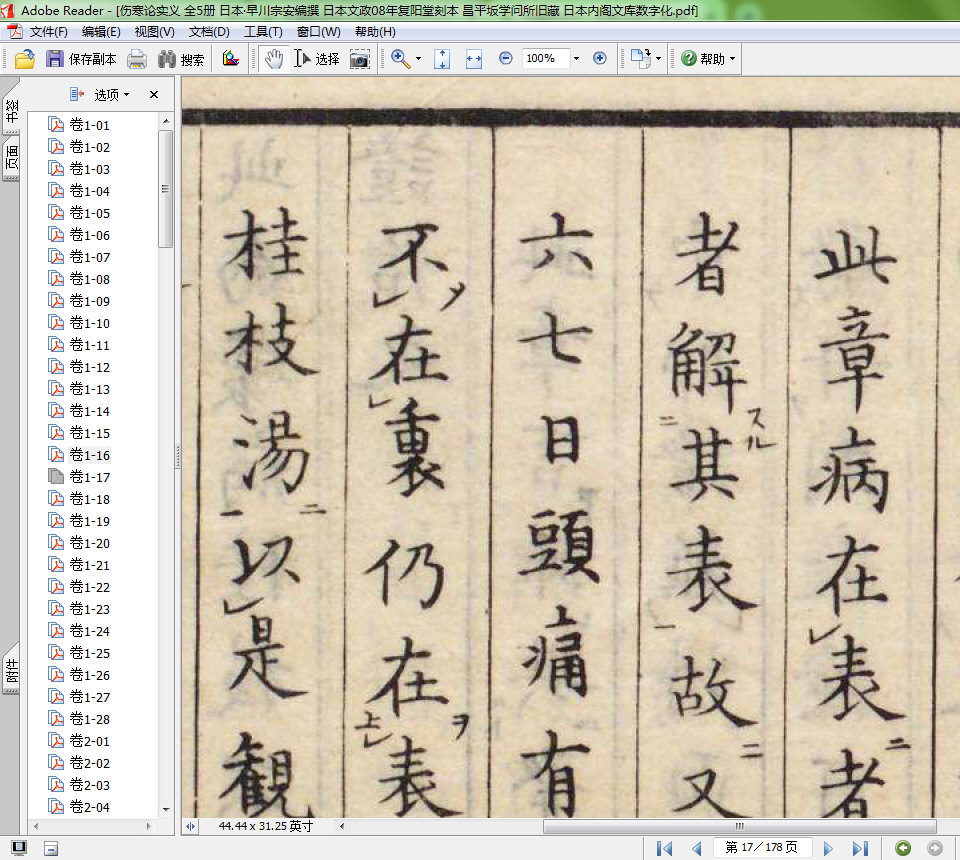 Adobe Reader - [伤寒论实义 全5册 日本·早川宗安编撰 日本文政08年复阳堂刻本 昌平坂学问所旧藏 日本内阁文库数字化.pdf]
文件(F) 编辑(E) 视图(V) 文档(D) 工具(T) 窗口(W) 帮助(H)
保存副本 搜索 选择 100% 帮助
书签
页面
附件
选项
卷1-01
卷1-02
卷1-03
卷1-04
卷1-05
卷1-06
卷1-07
卷1-08
卷1-09
卷1-10
卷1-11
卷1-12
卷1-13
卷1-14
卷1-15
卷1-16
卷1-17
卷1-18
卷1-19
卷1-20
卷1-21
卷1-22
卷1-23
卷1-24
卷1-25
卷1-26
卷1-27
卷1-28
卷2-01
卷2-02
卷2-03
卷2-04
此章病在レ表二者
者解スル二其表一故二又
六七日頭痛有
不レメ在レ裏仍在ヲ上レ表
桂枝湯二一以レ是観
44.44 x 31.25 英寸
第 17／178 页